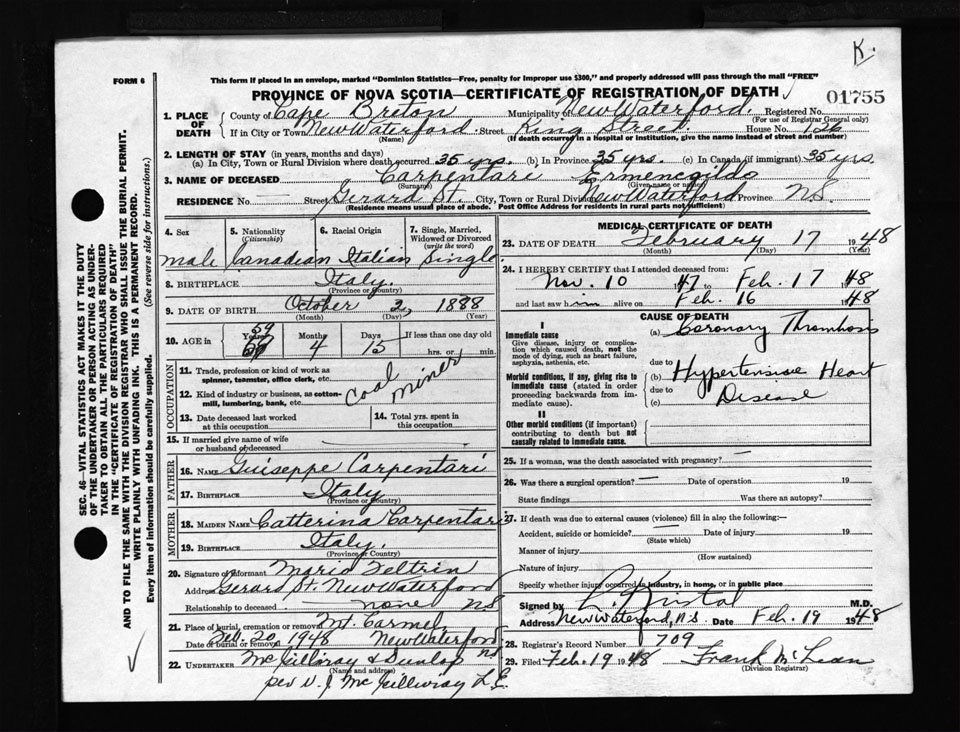 K.
FORM 6
This form if placed in an envelope, marked "Dominion Statistics—Free, penalty for improper use $300," and properly addressed will pass through the mail "FREE"
PROVINCE OF NOVA SCOTIA—CERTIFICATE OF REGISTRATION OF DEATH
01755
1. PLACE OF DEATH
County of Cape Breton Municipality of New Waterford. Registered No.
(For use of Registrar General only)
If in City or Town New Waterford Street King Street. House No. 126
(Name) (If death occurred in a Hospital or Institution, give the name instead of street and number)
2. LENGTH OF STAY (in years, months and days)
(a) In City, Town or Rural Division where death occurred 35 yrs. (b) In Province 35 yrs. (c) In Canada (if immigrant) 35 yrs.
3. NAME OF DECEASED Carpentari Ermenegildo
(Surname) (Given name or names)
RESIDENCE No. — Street Gerard St. City, Town or Rural Division New Waterford Province N.S.
(Residence means usual place of abode. Post Office Address for residents in rural parts not sufficient)
4. Sex 5. Nationality (Citizenship) 6. Racial Origin 7. Single, Married, Widowed or Divorced (write the word)
Male Canadian Italian Single
8. BIRTHPLACE Italy.
(Province or Country)
9. DATE OF BIRTH October 2, 1888
(Month) (Day) (Year)
10. AGE in Years Months Days If less than one day old
59 4 15 hrs. or min.
OCCUPATION
11. Trade, profession or kind of work as spinner, teamster, office clerk, etc.
12. Kind of industry or business, as cotton-mill, lumbering, bank, etc.
Coal Miner
13. Date deceased last worked at this occupation
14. Total yrs. spent in this occupation
15. If married give name of wife or husband of deceased —
FATHER
16. NAME Guiseppe Carpentari
17. BIRTHPLACE Italy
(Province or Country)
MOTHER
18. MAIDEN NAME Catterina Carpentari
19. BIRTHPLACE Italy.
(Province or Country)
20. Signature of informant Mario Feltrin
Address Gerard St. New Waterford
Relationship to deceased none NS
21. Place of burial, cremation or removal Mt. Carmel
Date of burial or removal Feb. 20 1948 New Waterford NS
22. UNDERTAKER McGillivray & Dunlop
(Name and address)
per V. J. McGillivray L.E.
MEDICAL CERTIFICATE OF DEATH
23. DATE OF DEATH February 17 1948
(Month) (Day) (Year)
24. I HEREBY CERTIFY that I attended deceased from:
Nov. 10 1947 to Feb. 17 1948
and last saw him alive on Feb. 16 1948
CAUSE OF DEATH
I
Immediate cause
Give disease, injury or complication which caused death, not the mode of dying, such as heart failure, asphyxia, asthenia, etc.
(a) Coronary Thrombosis
due to
Morbid conditions, if any, giving rise to immediate cause (stated in order proceeding backwards from immediate cause).
(b) Hypertensive Heart
due to
(c) Disease
II
Other morbid conditions (if important) contributing to death but not causally related to immediate cause.
25. If a woman, was the death associated with pregnancy? —
26. Was there a surgical operation? — Date of operation 19
State findings Was there an autopsy?
27. If death was due to external causes (violence) fill in also the following:—
Accident, suicide or homicide? Date of injury 19
(State which)
Manner of injury
(How sustained)
Nature of injury
Specify whether injury occurred in industry, in home, or in public place
Signed by M.D.
Address New Waterford, N.S. Date Feb. 19 1948
28. Registrar's Record Number 709
29. Filed Feb. 19 1948 Frank McLean
(Division Registrar)
SEC. 46—VITAL STATISTICS ACT MAKES IT THE DUTY
OF THE UNDERTAKER OR PERSON ACTING AS UNDER-
TAKER TO OBTAIN ALL THE PARTICULARS REQUIRED
IN THE "CERTIFICATE OF REGISTRATION OF DEATH"
AND TO FILE THE SAME WITH THE DIVISION REGISTRAR WHO SHALL ISSUE THE BURIAL PERMIT.
WRITE PLAINLY WITH UNFADING INK. THIS IS A PERMANENT RECORD.
Every item of information should be carefully supplied. (See reverse side for instructions.)